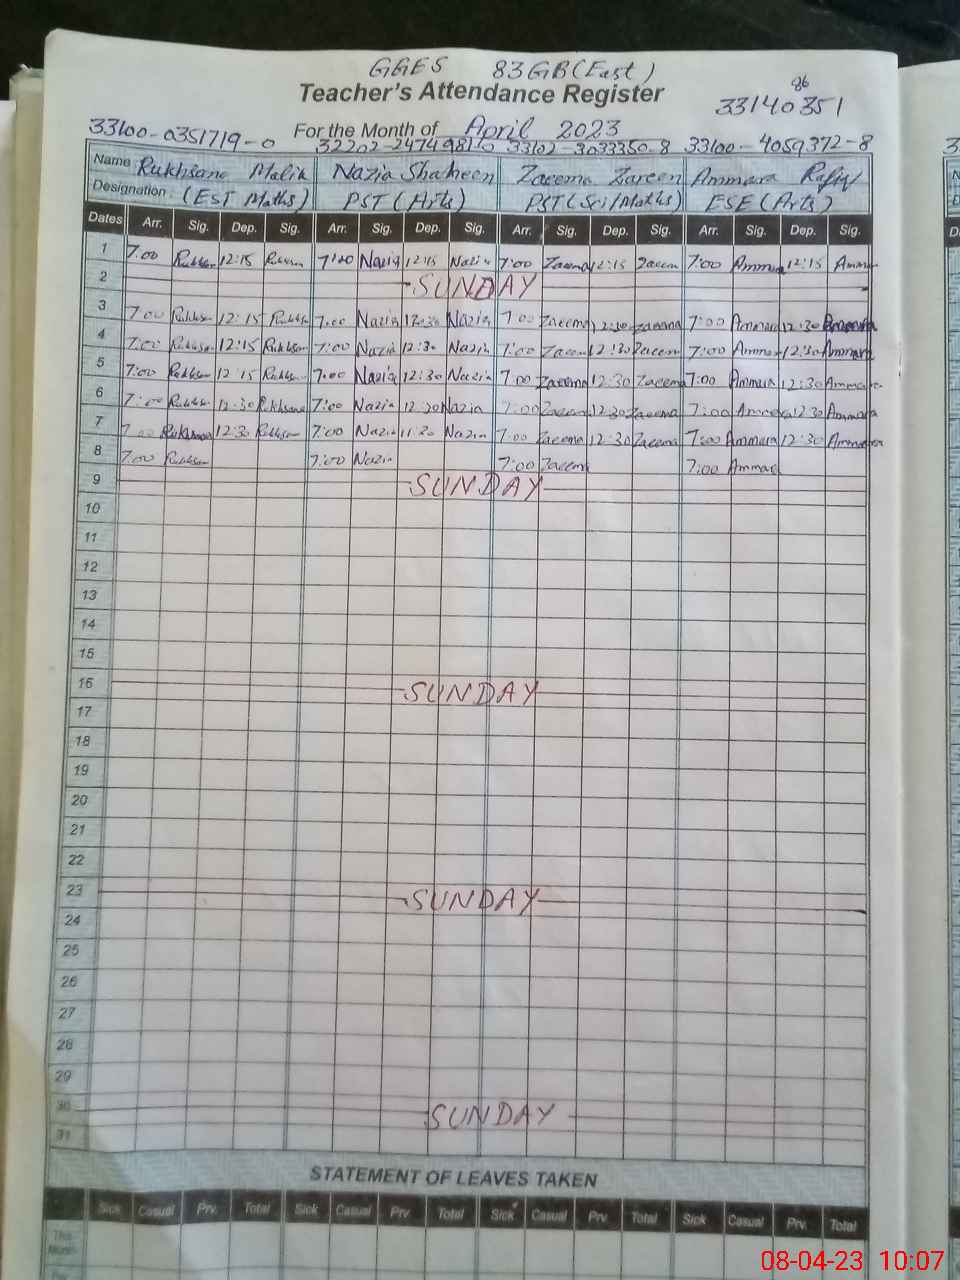 GGES 83GB(East)
Teacher's Attendance Register
86
33140351
33100-0351719-0 For the Month of April 2023
32202-2474981-0 33102-3033350-8 33100-4059372-8
Name : Rukhsana Malik Nazia Shaheen Zaeema Zareen Ammara Rafiq
Designation : (EST Maths) PST(Arts) PST(Sci/Maths) ESE(Arts)
Dates Arr. Sig. Dep. Sig. Arr. Sig. Dep. Sig. Arr. Sig. Dep. Sig. Arr. Sig. Dep. Sig.
1 7:00 12:15 7:00 Nazia 12:15 Nazia 7:00 Zaeema 12:15 Zaeem 7:00 Ammara 12:15 Ammar
2 SUNDAY
3 7:00 12:15 7:00 Nazia 12:30 Nazia 7:00 Zaeema 12:30 Zaeema 7:00 Ammara 12:30 Ammara
4 7:00 12:15 7:00 Nazia 12:30 Nazia 7:00 Zaeem 12:30 Zaeem 7:00 Ammar 12:30 Ammara
5 7:00 12:15 7:00 Nazia 12:30 Nazia 7:00 Zaeema 12:30 Zaeema 7:00 Ammara 12:30 Ammara
6 7:00 12:30 Rukhsana 7:00 Nazia Nazia 7:00 Zaeema 12:30 Zaeema 7:00 Ammara 12:30 Ammara
7 7:00 Rukhsana 12:30 7:00 Nazia Nazia 7:00 Zaeema 12:30 Zaeema 7:00 Ammara 12:30 Ammara
8 7:00 7:00 Nazia 7:00 Zaeema 7:00 Ammara
9 SUNDAY
10
11
12
13
14
15
16 SUNDAY
17
18
19
20
21
22
23 SUNDAY
24
25
26
27
28
29
30 SUNDAY
31
STATEMENT OF LEAVES TAKEN
Sick Casual Prv. Total Sick Casual Prv. Total Sick Casual Prv. Total Sick Casual Prv. Total
This
Month
08-04-23 10:07